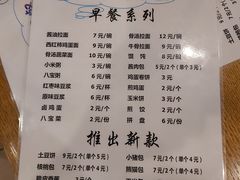 早餐系列
酱油拉面 7元/碗 骨汤拉面 12元/碗
西红柿鸡蛋面 9元/碗 牛骨拉面 9元/碗
骨汤蔬菜面 10元/碗 馄饨 8元/碗
小米粥 3元/碗 酱肉包 5元/2个(单个3元)
八宝粥 3元/碗 鸡蛋卷饼 3元
红枣味豆浆 3元/碗 煎鸡蛋 2元/个
原味豆浆 3元/碗 玉米饼 2元/个
卤鸡蛋 2元/个 煎饺 2元/个
八宝菜 2元/份 拼盘 6元/份
推出新款
土豆饼 9元/2个(单个5元) 小猪包 7元/2个(单个4元)
核桃包 7元/2个(单个4元) 熊猫包 7元/2个(单个4元)